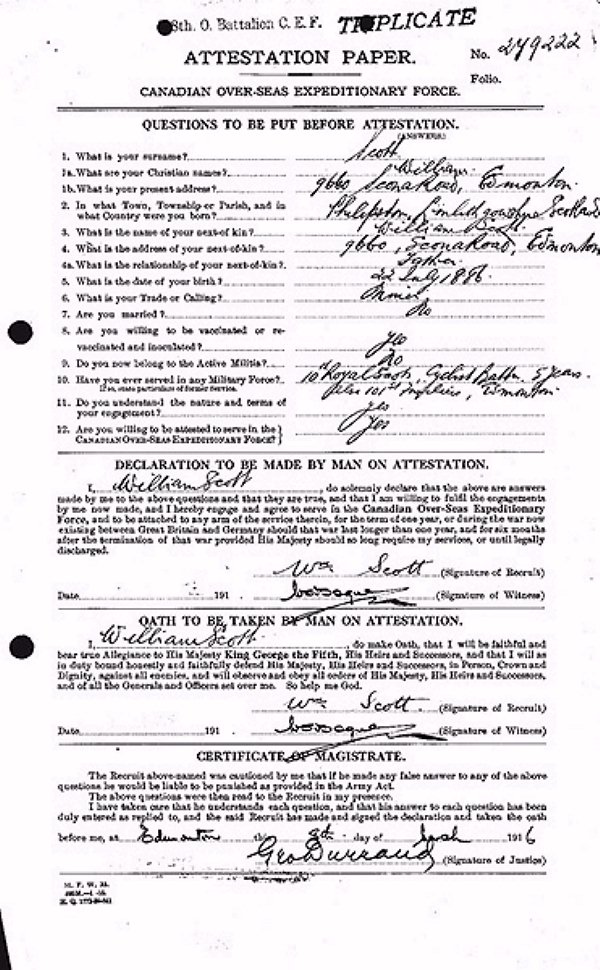 8th. O. Battalion C. E. F. TRIPLICATE
ATTESTATION PAPER. No. 249222
Folio.
CANADIAN OVER-SEAS EXPEDITIONARY FORCE.
QUESTIONS TO BE PUT BEFORE ATTESTATION.
(ANSWERS)
1. What is your surname? Scott
1a. What are your Christian names? William
1b. What is your present address? 9660 Scona Road, Edmonton
2. In what Town, Township or Parish, and in
what Country were you born? Philipston, Linlithgowshire
3. What is the name of your next-of kin? William Scott
4. What is the address of your next-of-kin? 9660, Scona Road, Edmonton
4a. What is the relationship of your next-of-kin? Father
5. What is the date of your birth? 22 July 1886
6. What is your Trade or Calling? Miner
7. Are you married? No
8. Are you willing to be vaccinated or re-
vaccinated and inoculated? Yes
9. Do you now belong to the Active Militia? No
10. Have you ever served in any Military Force? 10th Royal Scots, Cyclist Battn. 5 years
If so, state particulars of former Service. Also 101st Fusiliers, Edmonton
11. Do you understand the nature and terms of
your engagement? Yes
12. Are you willing to be attested to serve in the
CANADIAN OVER-SEAS EXPEDITIONARY FORCE? Yes
DECLARATION TO BE MADE BY MAN ON ATTESTATION.
I, William Scott, do solemnly declare that the above are answers
made by me to the above questions and that they are true, and that I am willing to fulfil the engagements
by me now made, and I hereby engage and agree to serve in the Canadian Over-Seas Expeditionary
Force, and to be attached to any arm of the service therein, for the term of one year, or during the war now
existing between Great Britain and Germany should that war last longer than one year, and for six months
after the termination of that war provided His Majesty should so long require my services, or until legally
discharged.
Wm Scott (Signature of Recruit)
Date 191 (Signature of Witness)
OATH TO BE TAKEN BY MAN ON ATTESTATION.
I, William Scott, do make Oath, that I will be faithful and
bear true Allegiance to His Majesty King George the Fifth, His Heirs and Successors, and that I will as
in duty bound honestly and faithfully defend His Majesty, His Heirs and Successors, in Person, Crown and
Dignity, against all enemies, and will observe and obey all orders of His Majesty, His Heirs and Successors,
and of all the Generals and Officers set over me. So help me God.
Wm Scott (Signature of Recruit)
Date 191 (Signature of Witness)
CERTIFICATE OF MAGISTRATE.
The Recruit above-named was cautioned by me that if he made any false answer to any of the above
questions he would be liable to be punished as provided in the Army Act.
The above questions were then read to the Recruit in my presence.
I have taken care that he understands each question, and that his answer to each question has been
duly entered as replied to, and the said Recruit has made and signed the declaration and taken the oath
before me, at Edmonton this 8th day of 1916
Geo Durrand (Signature of Justice)
M. F. W. 23.